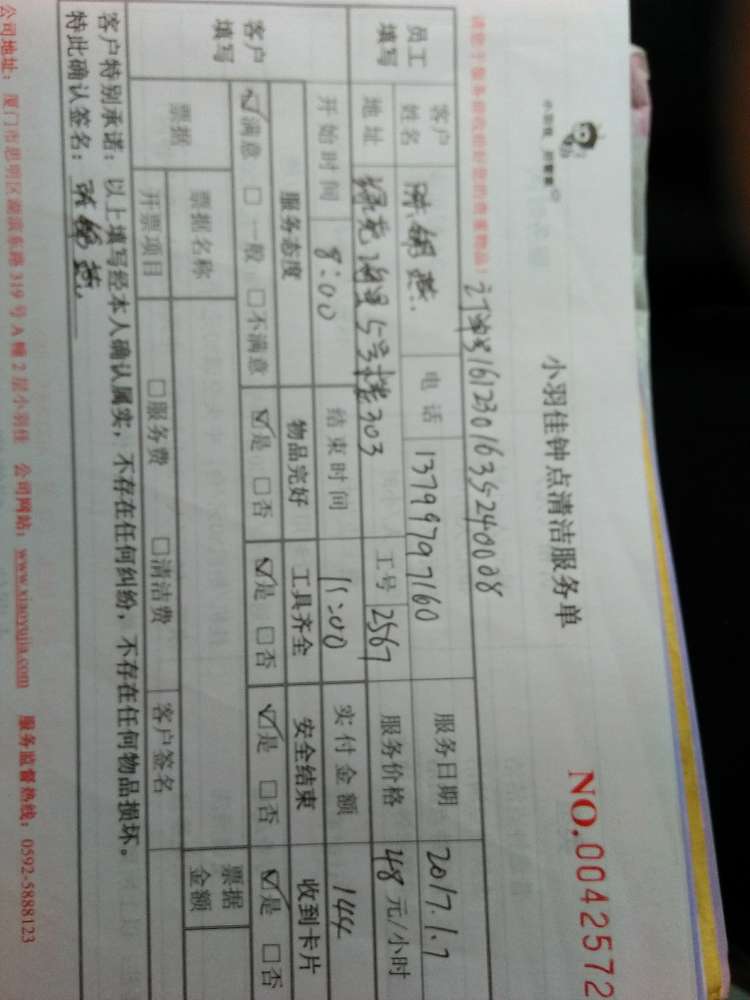 小羽佳钟点清洁服务单
NO.0042572
订单号1612301635240008
员工填写
客户姓名 电话 13799797160 服务日期 2017.1.7
地址 5号楼303 工号 2567 服务价格 48 元/小时
开始时间 8:00 结束时间 11:00 实付金额 144
客户填写
服务态度 物品完好 工具齐全 安全结束 收到卡片
☑满意 □一般 □不满意 ☑是 □否 ☑是 □否 ☑是 □否 ☑是 □否
票据 票据名称 票据金额
开票项目 □服务费 □清洁费 客户签名
客户特别承诺:以上填写经本人确认属实,不存在任何纠纷,不存在任何物品损坏。
特此确认签名:
公司地址:厦门市思明区湖滨东路 319 号 A 幢 2 层小羽佳 公司网站:www.xiaoyujia.com 服务监督热线:0592-5888123